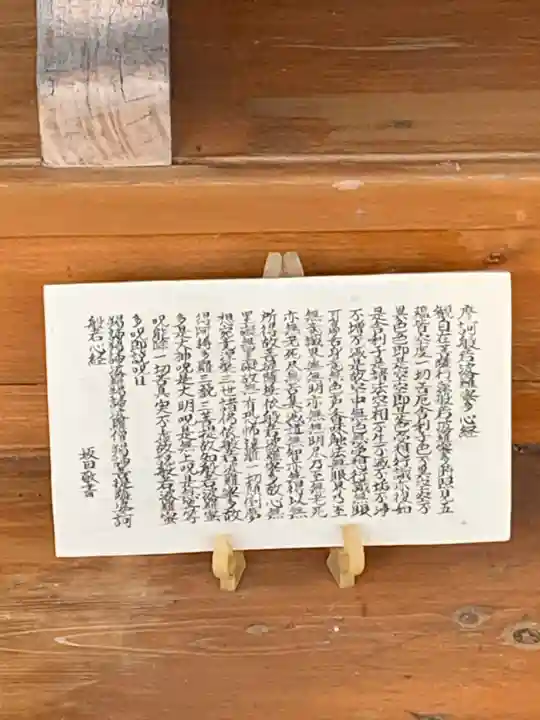 摩訶般若波羅蜜多心経
観自在菩薩行深般若波羅蜜多時照見五
蘊皆空度一切苦厄舎利子色不異空空不
異色色即是空空即是色受想行識亦復如
是舎利子是諸法空相不生不滅不垢不浄
不増不減是故空中無色無受想行識無眼
耳鼻舌身意無色声香味触法無眼界乃至
無意識界無無明亦無無明尽乃至無老死
亦無老死尽無苦集滅道無智亦無得以無
所得故菩提薩埵依般若波羅蜜多故心無
罣礙無罣礙故無有恐怖遠離一切顛倒夢
想究竟涅槃三世諸仏依般若波羅蜜多故
得阿耨多羅三藐三菩提故知般若波羅蜜
多是大神呪是大明呪是無上呪是無等等
呪能除一切苦真実不虚故説般若波羅蜜
多呪即説呪曰
羯諦羯諦波羅羯諦波羅僧羯諦菩提薩婆訶
般若心経